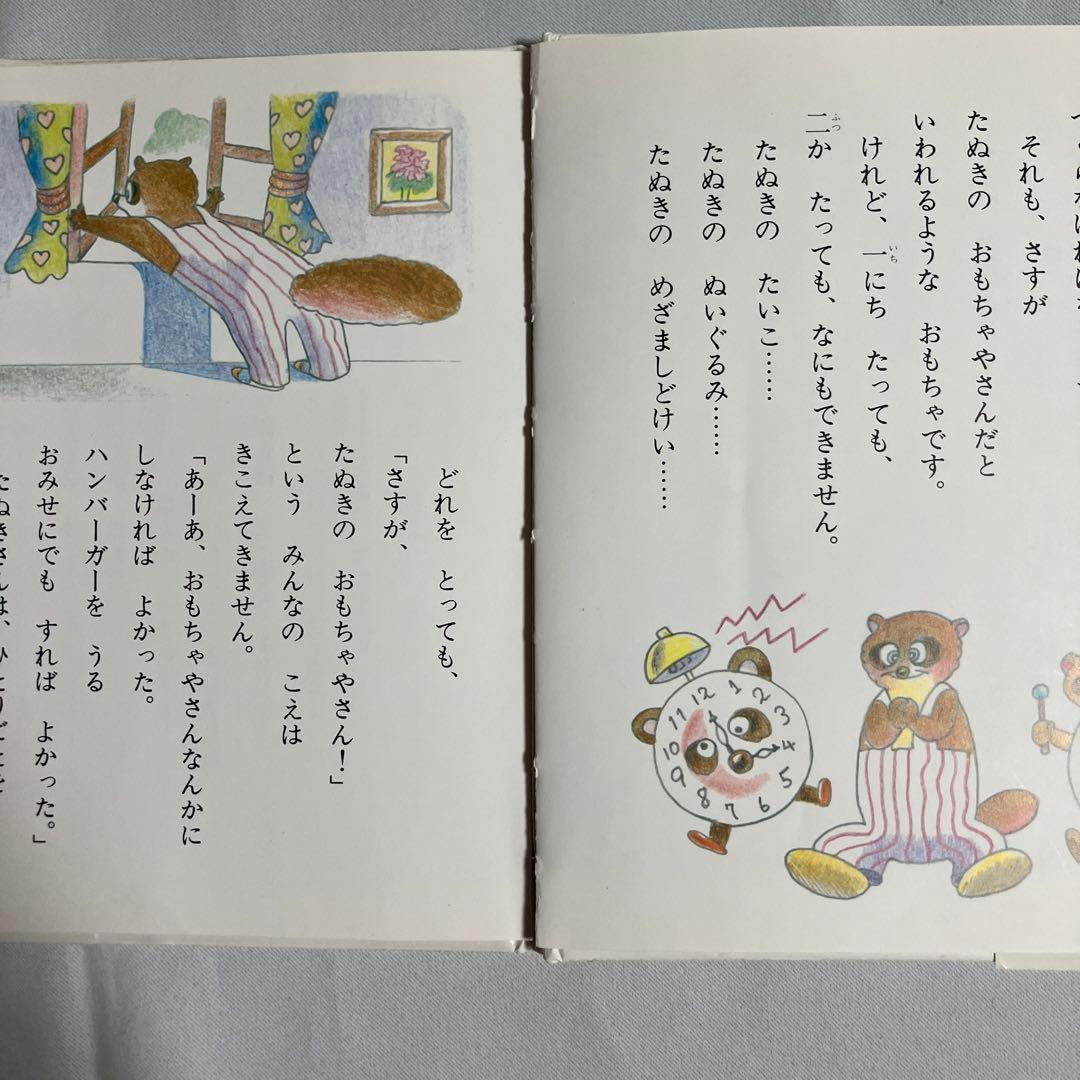 それも、さすが
たぬきの おもちゃやさんだと
いわれるような おもちゃです。
けれど、一にち たっても、
二か たっても、なにもできません。
たぬきの たいこ……
たぬきの ぬいぐるみ……
たぬきの めざましどけい……
いち
ふつ
12
1
2
3
4
5
6
7
8
9
10
11
どれを とっても、
「さすが、
たぬきの おもちゃやさん！」
という みんなの こえは
きこえてきません。
「あーあ、おもちゃやさんなんかに
しなければ よかった。
ハンバーガーを うる
おみせにでも すれば よかった。」
たぬきさんは、ひとりごとを